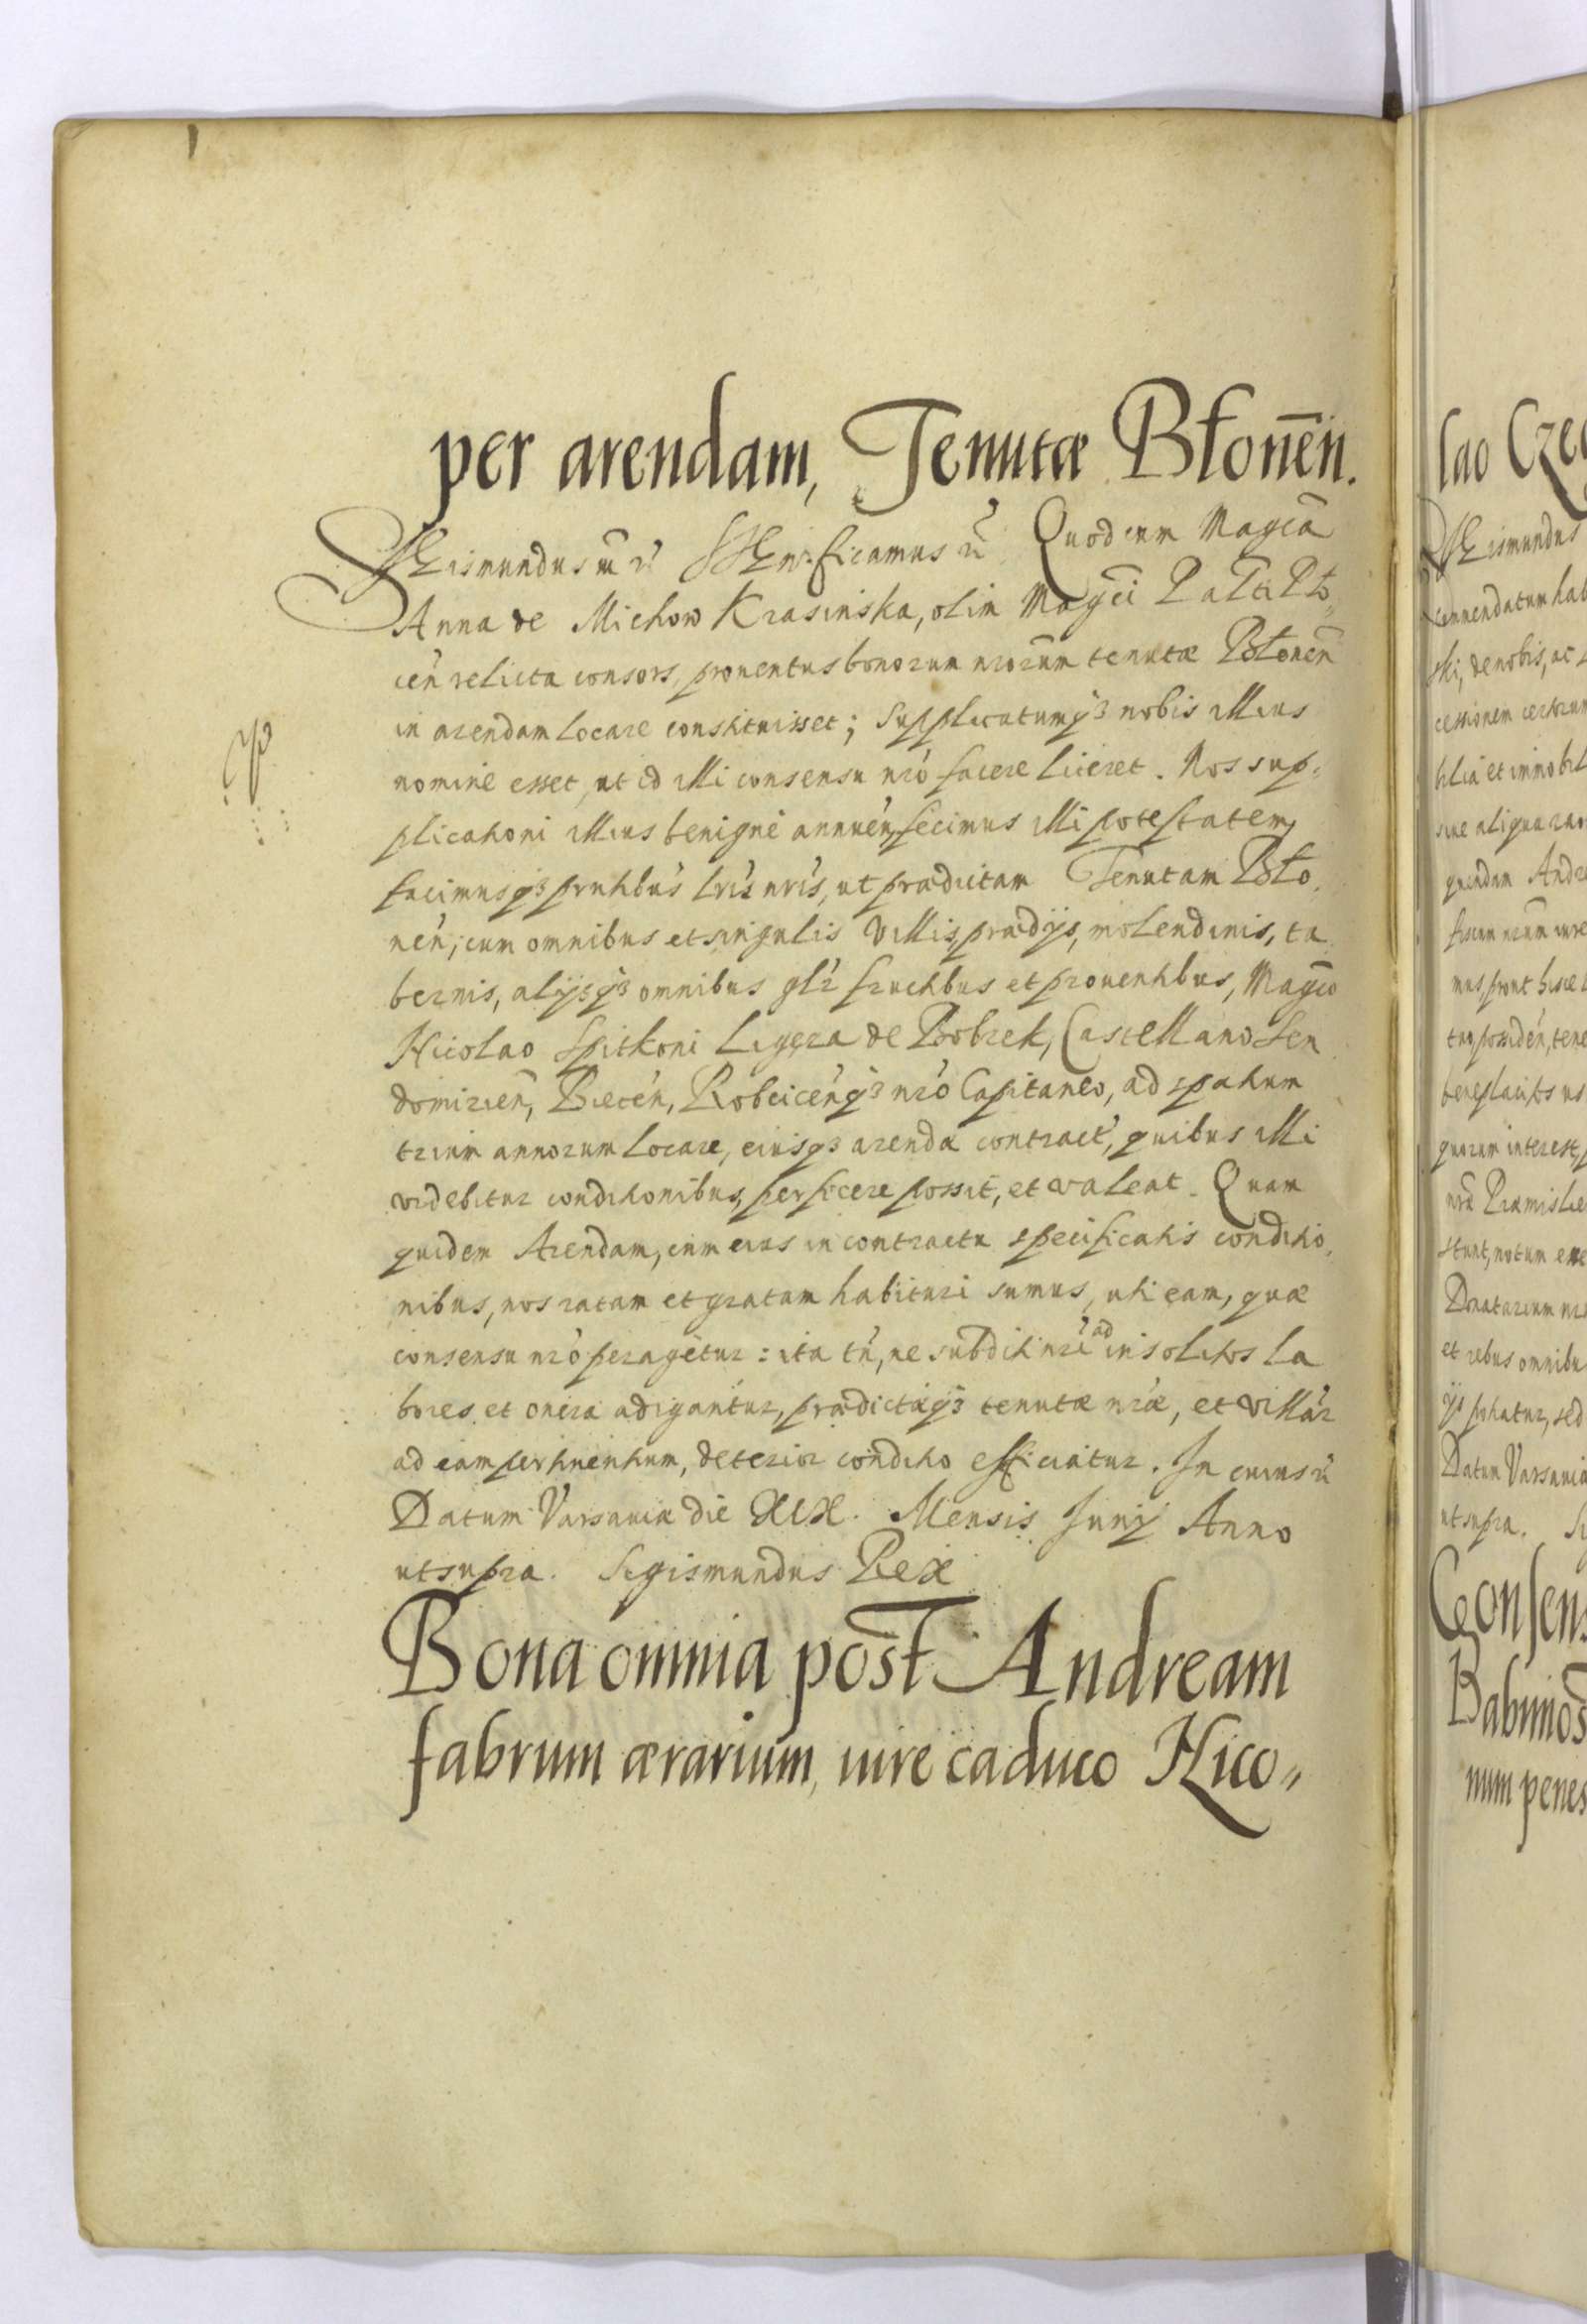 per arendam, Tenutæ Błoneñ.
Sigismundus etc. Significamus etc. Quod cum Magca
Anna de Michow Krasinska, olim Magci Palti Plo,,
cen relicta consors, prouentus bonorum nrorum tenutæ Błonen
in arendam locare constituisset; supplicatumq3 nobis illius
nomine esset, ut id illi consensu nro facere liceret. Nos sup,
plicationi illius benigne annuen, fecimus illi potestatem,
facimusq3 pntibus lris nris, ut prædictam Tenutam Bło,
nen, cum omnibus et singulis villis, prædijs, molendinis, ta
bernis, alijsq3 omnibus glr fructibus et prouentibus, Magco
Nicolao Spitkoni Ligęza de Bobrek, Castellano Sen
domirien, Biecen, Robcicenq3 nro Capitaneo, ad spatium
trium annorum locare, eiusq3 arendæ contract, quibus illi
videbitur conditionibus, perficere possit, et valeat. Quam
quidem Arendam, cum eius in contractu specificatis conditio,
nibus, nos ratam et gratam habituri sumus, uti eam, quæ
consensu nro peragetur: ita tn, ne subditi nri ad insolitos la
bores et onera adigantur, prædictæq3 tenutæ nræ, et villar
ad eam pertinentium, deterior conditio efficiatur. In cuius etc.
Datum Varsauiæ die XIX. Mensis Junij Anno
ut supra. Sigismundus Rex
Bona omnia post Andream
fabrum ærarium, iure caduco Nico,,
lao Czeg
Sigismundus
commendatum hab
ski, de nobis, ac
cessionem certorum
bilia et immobil
siue aliqua
quendam Andr
fiscum nrum iure
mus, prout hisce
tuo, possiden, tene
beneplacitos us
quorum interest, p
nra Præmislie
stunt, notum esse
Donatarium nr
et rebus omnibu
ijs potiatur, sed
Datum Varsauia
ut supra. Si
Consens
Babimos
num penes